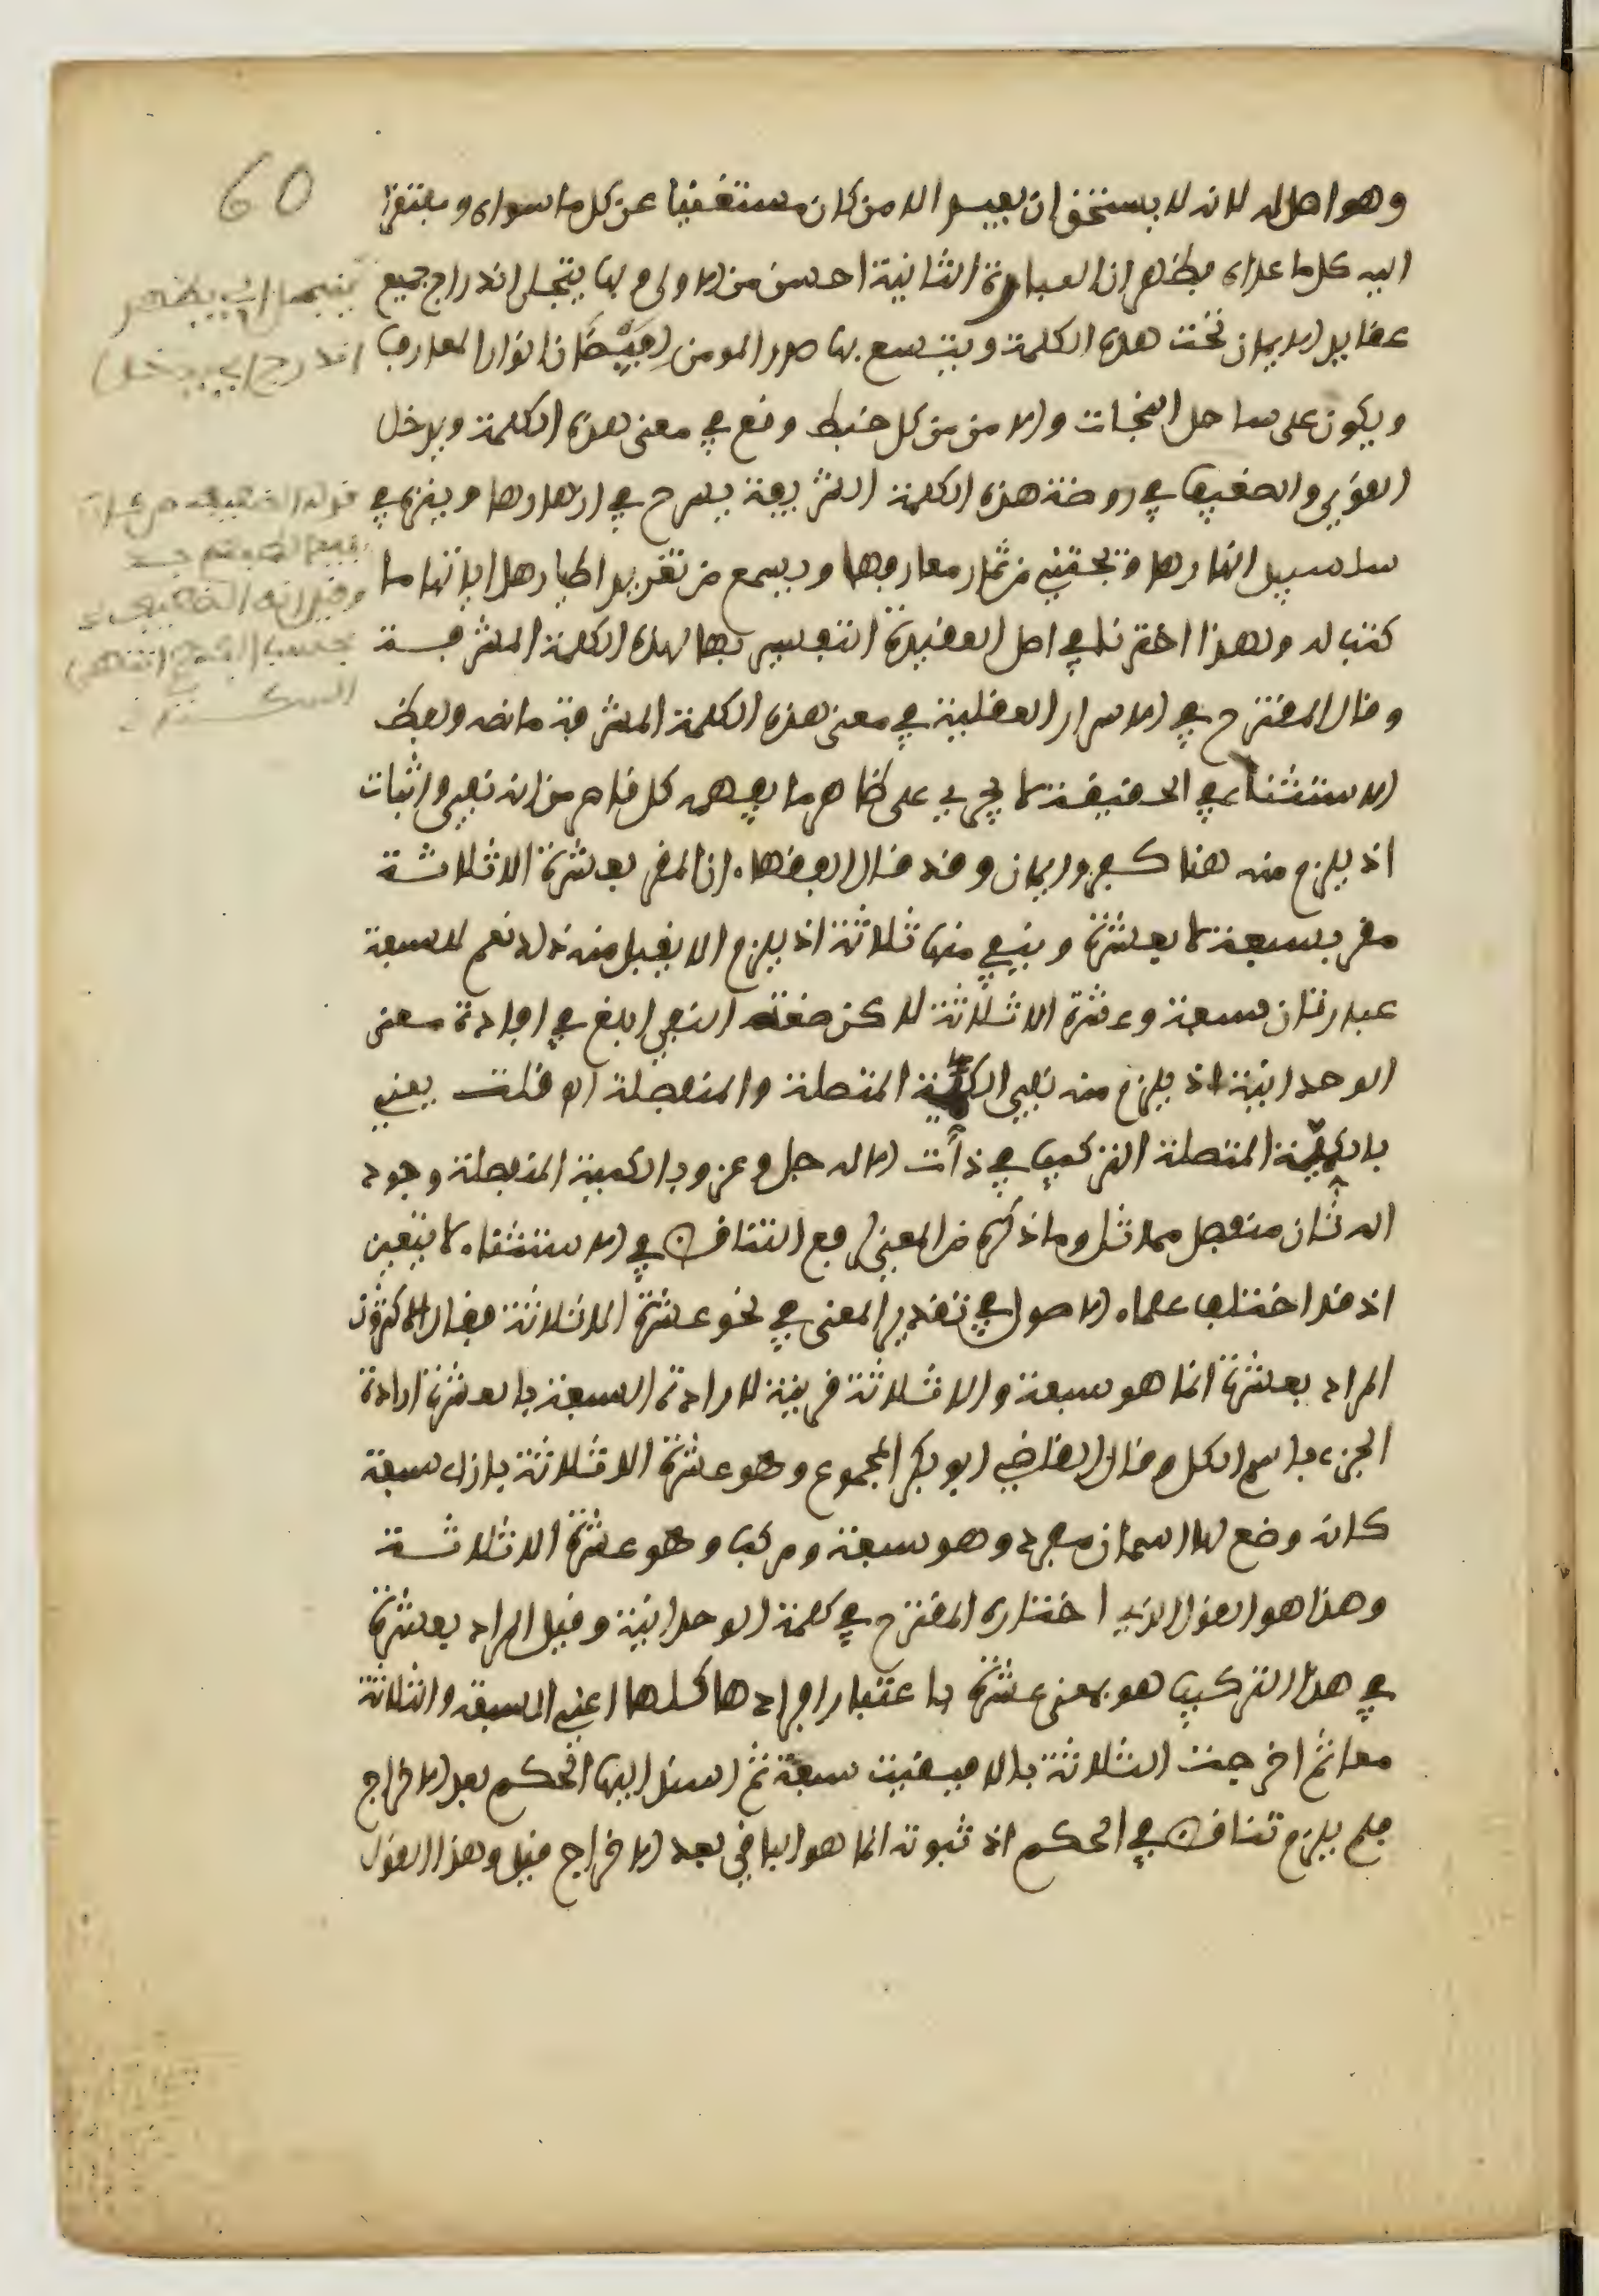 60
وهو اصل له لانه لا يستحق ان يعبد الا من كان مستغنيا عن كل ما سواه ومفتقرا
اليه كل ما عداه فظهر ان العبارة الثانية احسن من الاولى وبها ينجلى اندراج جميع
عقايد الايمان تحت هذه الكلمة ويتسع بها صدر المومن لفيضان انوار المعارف
ويكون على ساحل النجات والامن من كل خبط وقع في معنى هذه الكلمة ويدخل
القوي والضعيف في روضة هذه الكلمة الشريفة يسرح في ازهارها ويتنزه في
سلسبيل انهارها ويجتني من ثمار معارفها ويسمع من تغريد اطيار هدايتها ما
كتب له ولهذا اخترنا في اصل العقيدة التفسير بها لهذه الكلمة المشرفة
وقال المقترح في الاسرار العقلية في معنى هذه الكلمة المشرفة ما نصه ولفظ
الاستثناء في الحقيقة لا يجري على ظاهر ما يفهمه كل فاهم من انه نفي واثبات
اذ يلزم منه هنا كفر وايمان وقد قال الفقهاء ان المقر بعشرة الا ثلاثة
مقر بسبعة لا بعشرة وينفي منها ثلاثة اذ يلزم الا يقبل منه ذلك نعم للسبعة
عبارتان سبعة وعشرة الا ثلاثة لاكن صفة النفي ابلغ في افادة معنى
الوحدانية اذ يلزم منه نفي الكمية المتصلة والمنفصلة اه قلت يعني
بالكمية المتصلة التركيب في ذات الاله جل وعز وبالكمية المنفصلة وجود
اله ثان منفصل مماثل وما ذكره من المعنى لرفع التناقض في الاستثناء لا يتعين
اذ قد اختلف علماء الاصول في تقدير المعنى في نحو عشرة الا ثلاثة فقال الاكثرون
المراد بعشرة انما هو سبعة والا ثلاثة قرينة لارادة السبعة بالعشرة ارادة
الجزء باسم الكل وقال القاضي ابو بكر المجموع وهو عشرة الا ثلاثة بازاء سبعة
كانه وضع لها اسمان مفرد وهو سبعة ومركب وهو عشرة الا ثلاثة
وهذا هو القول الذي اختاره المقترح في كلمة الوحدانية وقيل المراد بعشرة
في هذا التركيب هو بمعنى عشرة باعتبار افرادها كلها اعني السبعة والثلاثة
معا ثم اخرجت الثلاثة بالا فبقيت سبعة ثم اسند اليها الحكم بعد الاخراج
فلم يلزم تناقض في الحكم اذ ثبوته انما هو الباقي بعد الاخراج قيل وهذا القول
ينجلى اي يظهر
اندراج اي يدخل